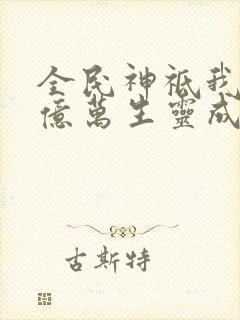 全民神祇我
億萬生靈成
古斯特